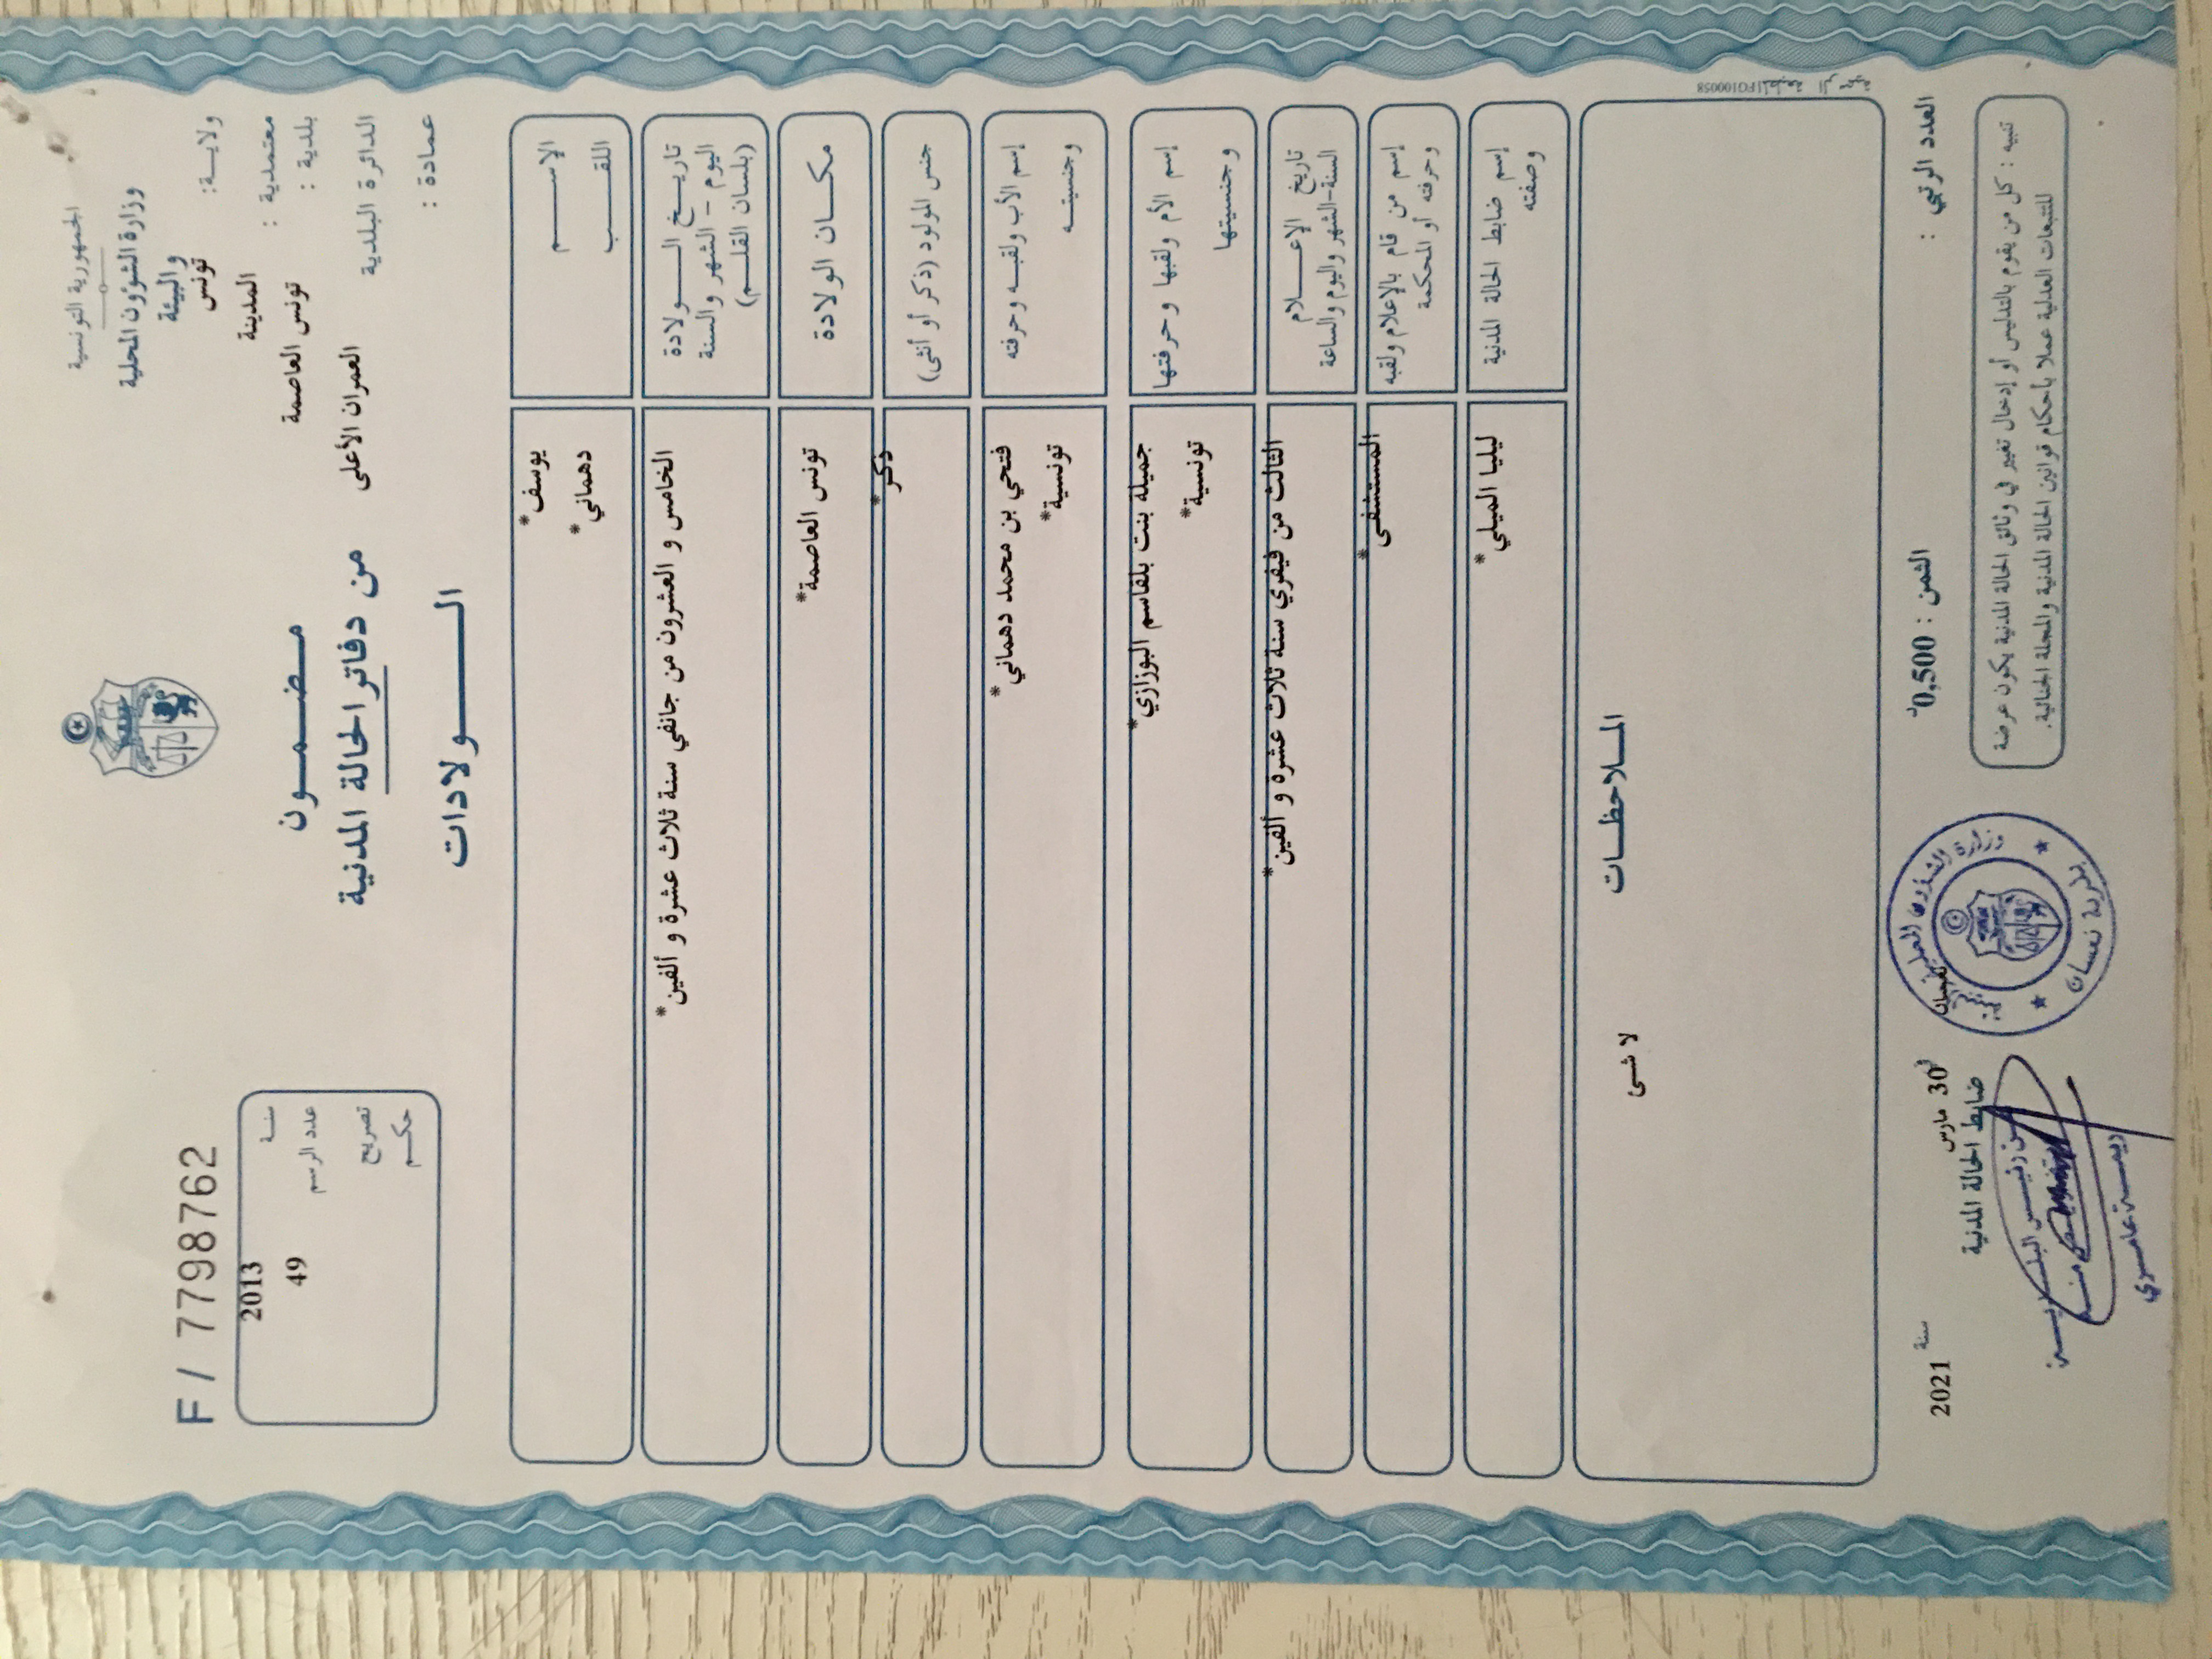 الجمهورية التونسية
وزارة الشؤون المحلية
والبيئة
ولايـــة: تونس
معتمدية : المدينة
بلدية : تونس العاصمة
الدائرة البلدية العمران الأعلى
عمادة :
مـضـمـــون
من دفاتر الحالة المدنية
الـــولادات
F / 7798762
سنـــة 2013
عدد الرسم 49
تصريح
حكــم
الإســـــم يوسف*
اللقـــــب دهماني*
تاريــخ الـــولادة
اليوم - الشهر والسنة
(بلسان القلــم)
الخامس و العشرون من جانفي سنة ثلاث عشرة و ألفين*
مكــان الولادة تونس العاصمة*
جنس المولود (ذكر أو أنثى) ذكر*
إسم الأب ولقبــه وحرفته فتحي بن محمد دهماني*
وجنسيتــه تونسية*
إسم الأم ولقبها وحرفتها جميلة بنت بلقاسم البوزازي*
وجنسيتها تونسية*
تاريخ الإعـــلام
السنة-الشهر واليوم والساعة
الثالث من فيفري سنة ثلاث عشرة و ألفين*
إسم من قام بالإعلام ولقبه
وحرفته أو المحكمة
المستشفى*
إسم ضابط الحالة المدنية
وصفته
ليليا الميلي*
المـلاحظـات
لا شئ
العدد الرتبي :
الثمن : 0,500د
30 مارس
سنة 2021
ضابط الحالة المدنية
تنبيه : كل من يقوم بالتدليس أو إدخال تغيير في وثائق الحالة المدنية يكون عرضة
للتتبعات العدلية عملا بأحكام قوانين الحالة المدنية والمجلة الجنائية.
وزارة الشؤون المحلية
بلدية نعسان